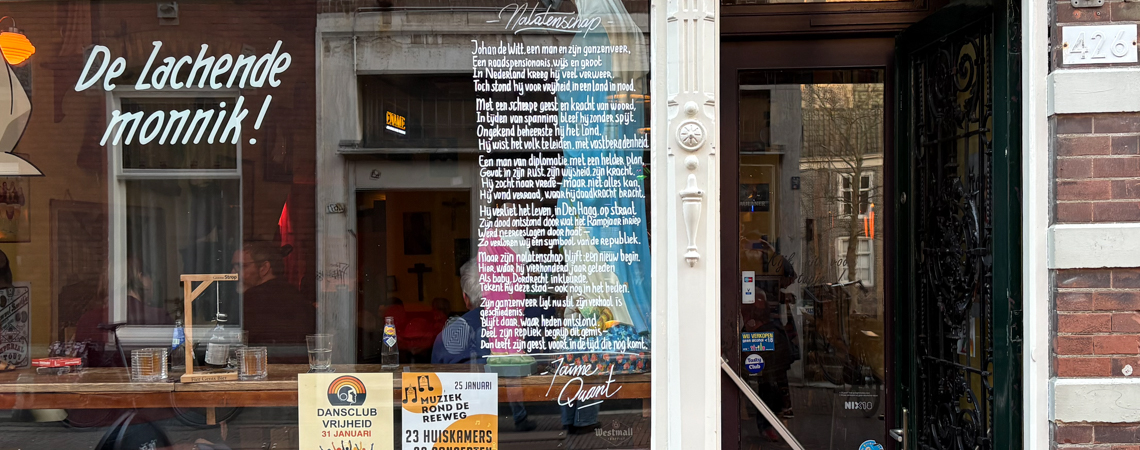 De Lachende
monnik!
Natatenschap
Johan de Witt, een man en zijn ganzenveer,
Een raadspensionaris, wijs en groot
In Nederland kreeg hij veel verweer,
Toch stond hij voor vrijheid, in een land in nood.
Met een scherpe geest en kracht van woord,
In tijden van spanning bleef hij zonder spijt.
Ongekend beheerste hij het land.
Hij wist het volk te leiden, met vastberadenheid
Een man van diplomatie, met een helder plan,
Gevat in zijn rust, zijn wijsheid zijn kracht.
Hij zocht naar vrede - maar niet alles kan,
Hij vond verraad, waar hij daadkracht bracht.
Hij verliet het leven, in Den Haag, op straat
Zijn dood ontstond door wat het Rampjaar inriep
Werd neergeslagen door haat -
Zo verloren wij een symbool van de republiek.
Maar zijn nalatenschap blijft een nieuw begin.
Hier, waar hij vierhonderd jaar geleden
Als baby, Dordrecht inkleurde.
Tekent hij deze stad - ook nog in het heden.
Zijn ganzenveer ligt nu stil, zijn verhaal is
geschiedenis.
Blijft daar, waar heden ontstond.
Deel zijn repliek, begrijp dit gemis -
Dan leeft zijn geest voort, in de tijd die nog komt.
Jaime
Quant
426
ENAME
Strop
DANSCLUB
VRIJHEID
31 JANUARI
25 JANUARI
MUZIEK
ROND DE
REEWEG
23 HUISKAMERS
Westmalle
WIJ VERKOPEN
Club
NIX18